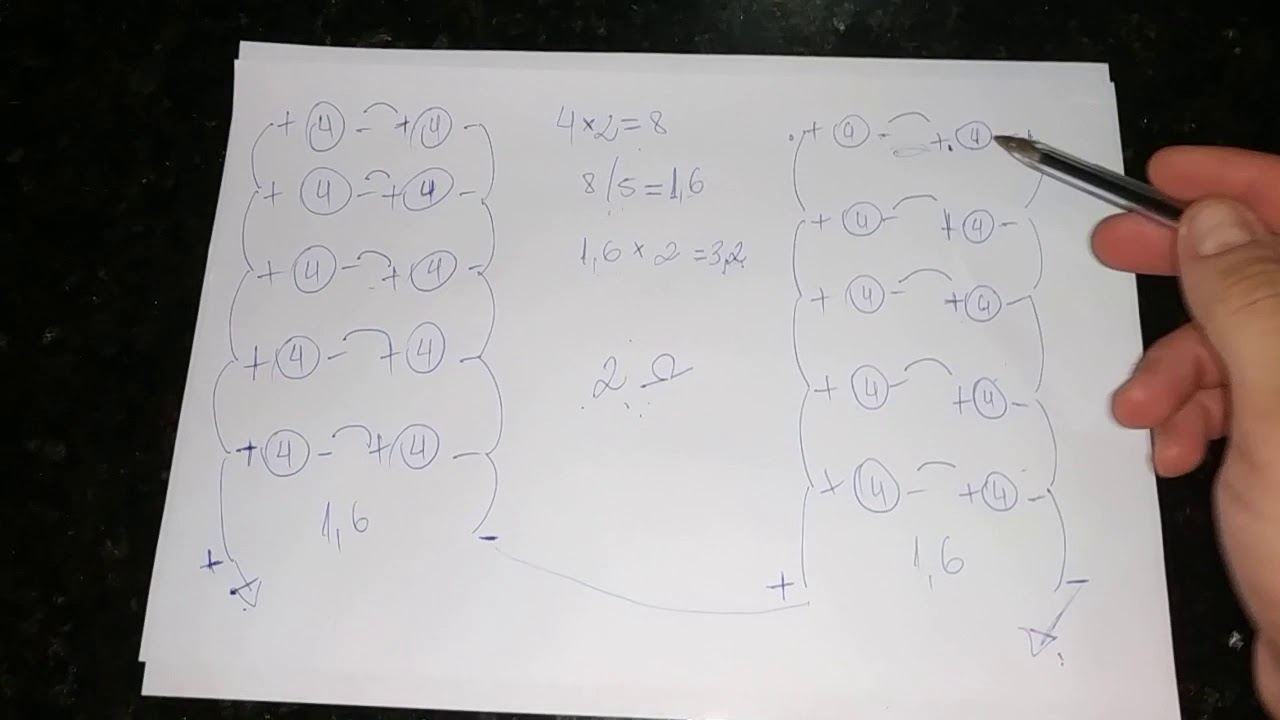 + 4 - + 4 -
+ 4 - + 4 -
+ 4 - + 4 -
+ 4 - + 4 -
+ 4 - + 4 -
1,6
+ -
+
4×2=8
8/5=1,6
1,6×2=3,2
2 Ω
+ 4 - + 4 -
+ 4 - + 4 -
+ 4 - + 4 -
+ 4 - + 4 -
+ 4 - + 4 -
1,6
+ -